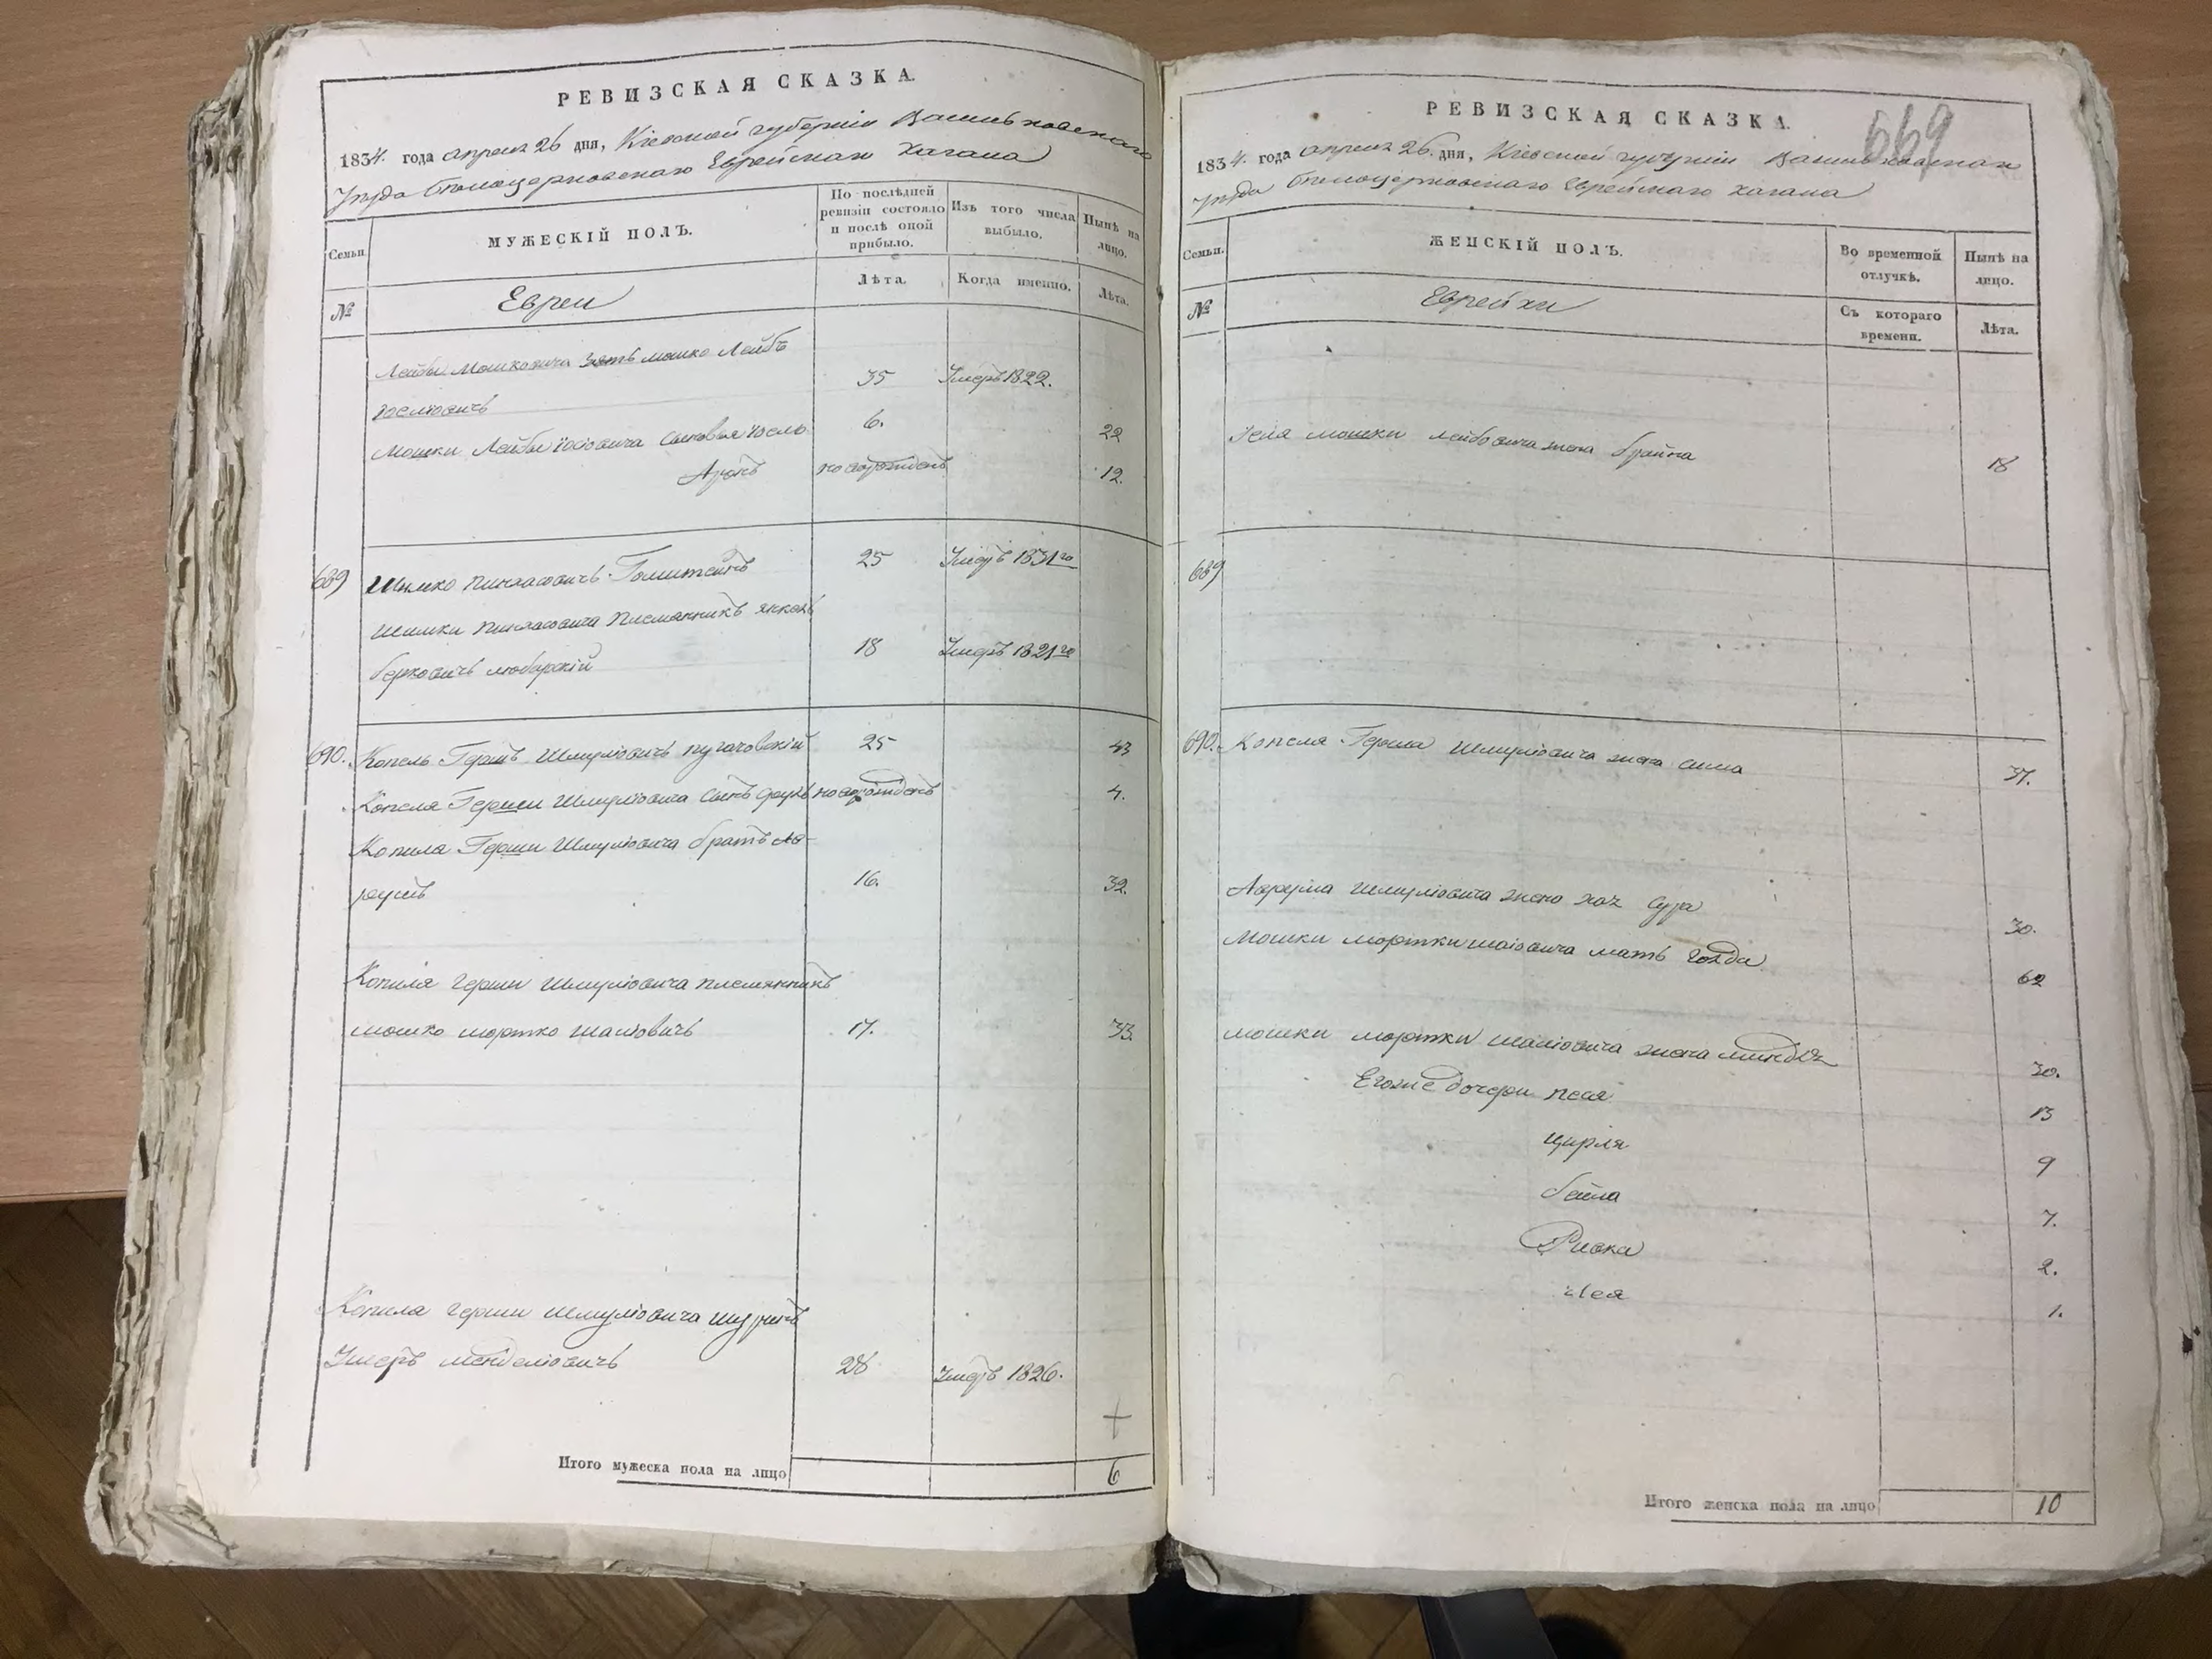 РЕВИЗСКАЯ СКАЗКА.
1834. года апреля 26 дня, Кіевской губерніи Васильковскаго
Уезда Белоцерковскаго Еврейскаго Кагала
Семьи.
МУЖЕСКІЙ ПОЛЪ.
По послѣдней ревизіи состояло и послѣ оной прибыло.
Изъ того числа выбыло.
Нынѣ на лицо.
№
Евреи
Лѣта.
Когда именно.
Лѣта.
Лейбы Мошковича зять мошко Лейбъ
Іослiовичъ 35 Умеръ 1822.
Мошки Лейбы Іосiовича сыновья Іосль 6. 22
Аронъ новорожденъ 12.
689 Шимко пинхасовичъ 25 Умеръ 1831го
Шимки пинхасовича племянникъ янкель
берковичъ любарскій 18 Умеръ 1821го
690. Копель Гершъ Шмулiовичъ пугачовскій 25 43
Копеля Герши Шмулiовича сынъ новорожденъ 4.
Копила Герши Шмулiовича братъ Ав-
румъ 16. 32.
Копиля герши Шмулiовича племянникъ
мошко мортко шаiовичъ 17. 33.
Копила герши Шмулiовича шуринъ
менделiовичъ 28 Умеръ 1826.
+
Итого мужеска пола на лицо 6
669
РЕВИЗСКАЯ СКАЗКА.
1834. года апреля 26. дня, Кіевской губерніи Васильковскаго
Уезда белоцерковскаго Еврейскаго кагала
Семьи.
ЖЕНСКІЙ ПОЛЪ.
Во временной отлучкѣ.
Нынѣ на лицо.
№
Еврейки
Съ котораго времени.
Лѣта.
мошки лейбовича жена брайна 18
689
690. Копеля Герша Шмулiовича жена сима 37.
Аврума Шмулiовича жена хая Сура 30.
Мошки мортки шаiовича мать голда 62
мошки мортки шаiовича жена миндля 30.
Егоже дочери песя 13
Цирля 9
бейла 7.
Ривка 2.
Лея 1.
Итого женска пола на лицо 10